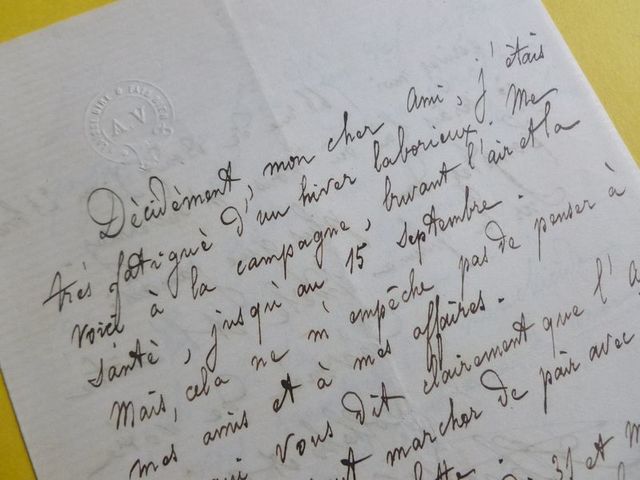 A.V
Décidément, mon cher ami, j'étais
très fatigué d'un hiver laborieux. Me
voici à la campagne, buvant l'air et la
santé, jusqu'au 15 septembre.
Mais, cela ne m'empêche pas de penser à
mes amis et à mes affaires.
qui vous dit clairement que l'a
marcher de pair avec
31 et